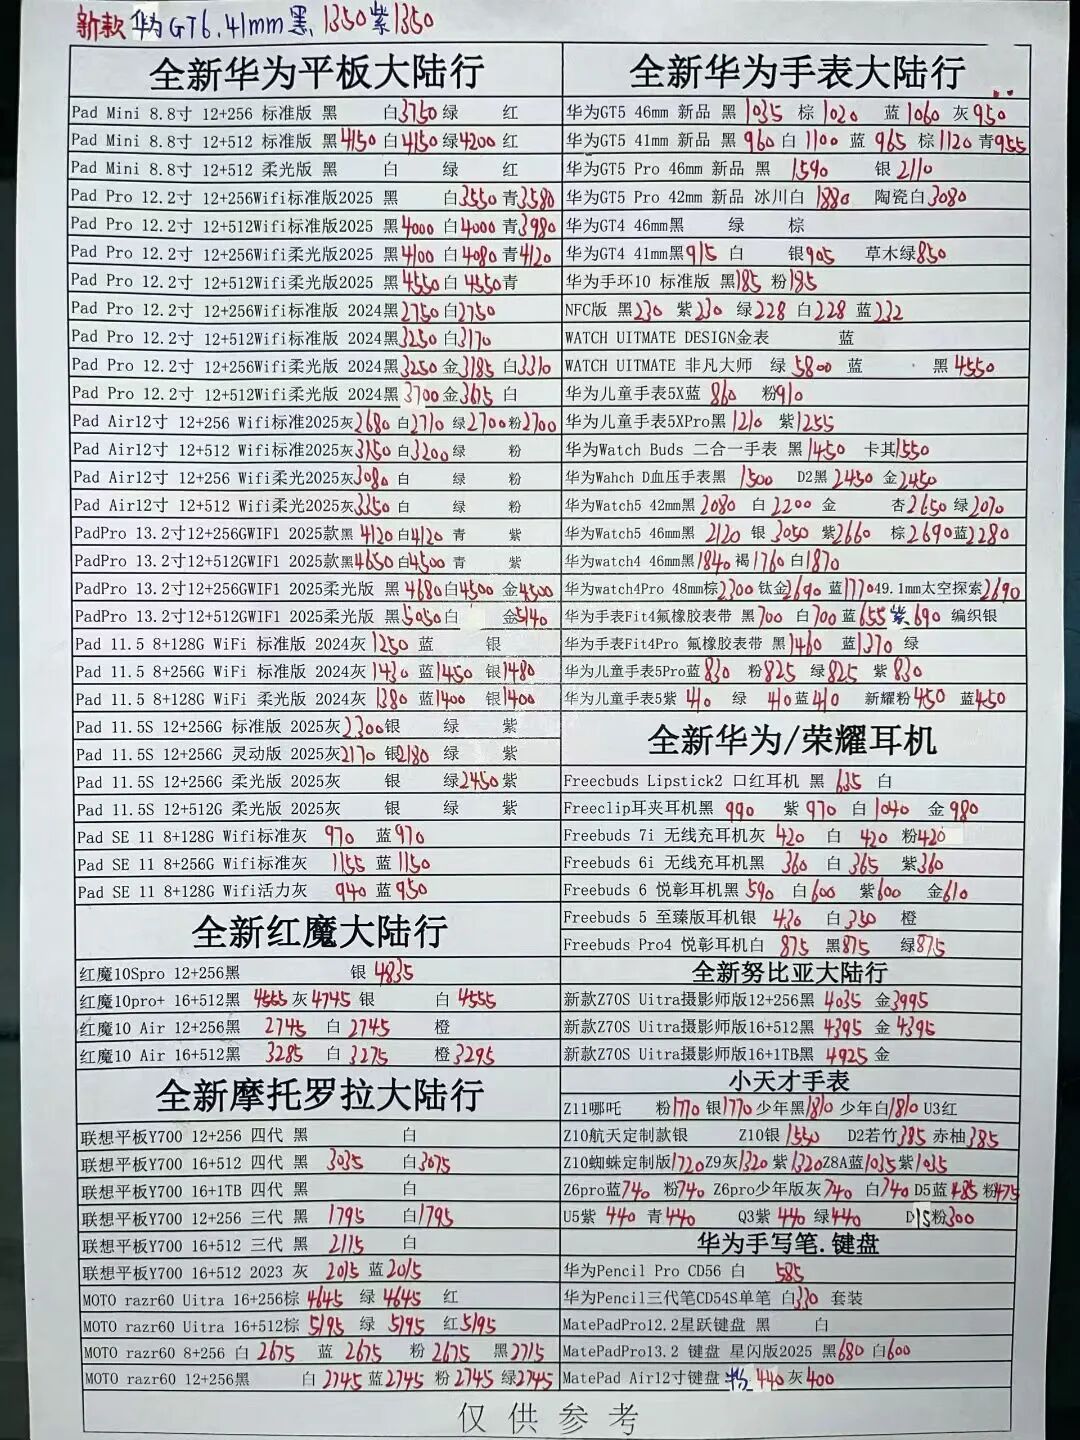 新款华为GT6.41mm黑1350紫1350
全新华为平板大陆行
Pad Mini 8.8寸 12+256 标准版 黑 白3750绿 红
Pad Mini 8.8寸 12+512 标准版 黑4150白4150绿4200红
Pad Mini 8.8寸 12+512 柔光版 黑 白 绿 红
Pad Pro 12.2寸 12+256Wifi标准版2025 黑 白3550青3580
Pad Pro 12.2寸 12+512Wifi标准版2025 黑4000白4000青3980
Pad Pro 12.2寸 12+256Wifi柔光版2025 黑4100白4080青4120
Pad Pro 12.2寸 12+512Wifi柔光版2025 黑4550白4550青
Pad Pro 12.2寸 12+256Wifi标准版 2024黑2750白2750
Pad Pro 12.2寸 12+512Wifi标准版 2024黑3250白3170
Pad Pro 12.2寸 12+256Wifi柔光版 2024黑3250金3185白3310
Pad Pro 12.2寸 12+512Wifi柔光版 2024黑3700金3675白
Pad Air12寸 12+256 Wifi标准2025灰2680白2710绿2700粉2700
Pad Air12寸 12+512 Wifi标准2025灰3150白3200绿 粉
Pad Air12寸 12+256 Wifi柔光2025灰3080白 绿 粉
Pad Air12寸 12+512 Wifi柔光2025灰3350白 绿 粉
PadPro 13.2寸12+256GWIF1 2025款黑4120白4120青 紫
PadPro 13.2寸12+512GWIF1 2025款黑4650白4500青 紫
PadPro 13.2寸12+256GWIF1 2025柔光版 黑4680白4500金4500
PadPro 13.2寸12+512GWIF1 2025柔光版 黑5050白 金5140
Pad 11.5 8+128G WiFi 标准版 2024灰1250蓝 银
Pad 11.5 8+256G WiFi 标准版 2024灰1430蓝1450银1480
Pad 11.5 8+128G WiFi 柔光版 2024灰1380蓝1400银1400
Pad 11.5S 12+256G 标准版 2025灰2300银 绿 紫
Pad 11.5S 12+256G 灵动版 2025灰2170银2180绿 紫
Pad 11.5S 12+256G 柔光版 2025灰 银 绿2450紫
Pad 11.5S 12+512G 柔光版 2025灰 银 绿 紫
Pad SE 11 8+128G Wifi标准灰 970 蓝970
Pad SE 11 8+256G Wifi标准灰 1155 蓝1150
Pad SE 11 8+128G Wifi活力灰 940 蓝950
全新红魔大陆行
红魔10Spro 12+256黑 银4835
红魔10pro+ 16+512黑 4555灰4745银 白4555
红魔10 Air 12+256黑 2745 白2745 橙
红魔10 Air 16+512黑 3285 白3275 橙3295
全新摩托罗拉大陆行
联想平板Y700 12+256 四代 黑 白
联想平板Y700 16+512 四代 黑 3035 白3075
联想平板Y700 16+1TB 四代 黑 白
联想平板Y700 12+256 三代 黑 1795 白1795
联想平板Y700 16+512 三代 黑 2115 白
联想平板Y700 16+512 2023 灰 2015蓝2015
MOTO razr60 Uitra 16+256棕4645 绿4645 红
MOTO razr60 Uitra 16+512棕5195 绿5195 红5195
MOTO razr60 8+256 白2675 蓝2675 粉2675 黑2715
MOTO razr60 12+256黑 白2745蓝2745粉2745绿2745
全新华为手表大陆行
华为GT5 46mm 新品 黑1035 棕1020 蓝1060 灰950
华为GT5 41mm 新品 黑960白1100蓝965棕1120青955
华为GT5 Pro 46mm 新品 黑 1590 银2110
华为GT5 Pro 42mm 新品 冰川白1880 陶瓷白3080
华为GT4 46mm黑 绿 棕
华为GT4 41mm黑915白 银905 草木绿850
华为手环10 标准版 黑185粉185
NFC版 黑230 紫230 绿228 白228 蓝232
WATCH UITMATE DESIGN金表 蓝
WATCH UITMATE 非凡大师 绿5800 蓝 黑4550
华为儿童手表5X蓝860 粉910
华为儿童手表5XPro黑1210 紫1255
华为Watch Buds 二合一手表 黑1450 卡其1550
华为Wahch D血压手表黑 1500 D2黑2450 金2450
华为Watch5 42mm黑2080 白2200金 杏2650绿2070
华为Watch5 46mm黑 2120银3050紫2660 棕2690蓝2280
华为watch4 46mm黑1840褐1760白1870
华为watch4Pro 48mm棕2300钛金2690蓝177049.1mm太空探索2690
华为手表Fit4氟橡胶表带 黑700 白700蓝655紫690 编织银
华为手表Fit4Pro 氟橡胶表带 黑1460 蓝1370绿
华为儿童手表5Pro蓝830 粉825 绿825 紫830
华为儿童手表5紫410 绿 410蓝410 新耀粉450 蓝450
全新华为/荣耀耳机
Freecbuds Lipstick2 口红耳机 黑 635 白
Freeclip耳夹耳机黑 990 紫970白1040 金980
Freebuds 7i 无线充耳机灰 420 白420粉420
Freebuds 6i 无线充耳机黑 360 白365 紫360
Freebuds 6 悦彰耳机黑590 白600 紫600 金610
Freebuds 5 至臻版耳机银 430 白350 橙
Freebuds Pro4 悦彰耳机白 875 黑875 绿875
全新努比亚大陆行
新款Z70S Uitra摄影师版12+256黑4035 金3995
新款Z70S Uitra摄影师版16+512黑4395 金4395
新款Z70S Uitra摄影师版16+1TB黑4925金
小天才手表
Z11哪吒 粉1770银1770少年黑1810少年白1810U3红
Z10航天定制款银 Z10银1550 D2若竹385赤柚385
Z10蜘蛛定制版1720Z9灰1320紫1320Z8A蓝1035紫1035
Z6pro蓝740 粉740 Z6pro少年版灰740 白740D5蓝485粉475
U5紫 440 青440 Q3紫440绿440 D15粉300
华为手写笔.键盘
华为Pencil Pro CD56 白 585
华为Pencil三代笔CD54S单笔 白330 套装
MatePadPro12.2星跃键盘 黑 白
MatePadPro13.2 键盘 星闪版2025 黑680白600
MatePad Air12寸键盘 粉440灰400
仅供参考